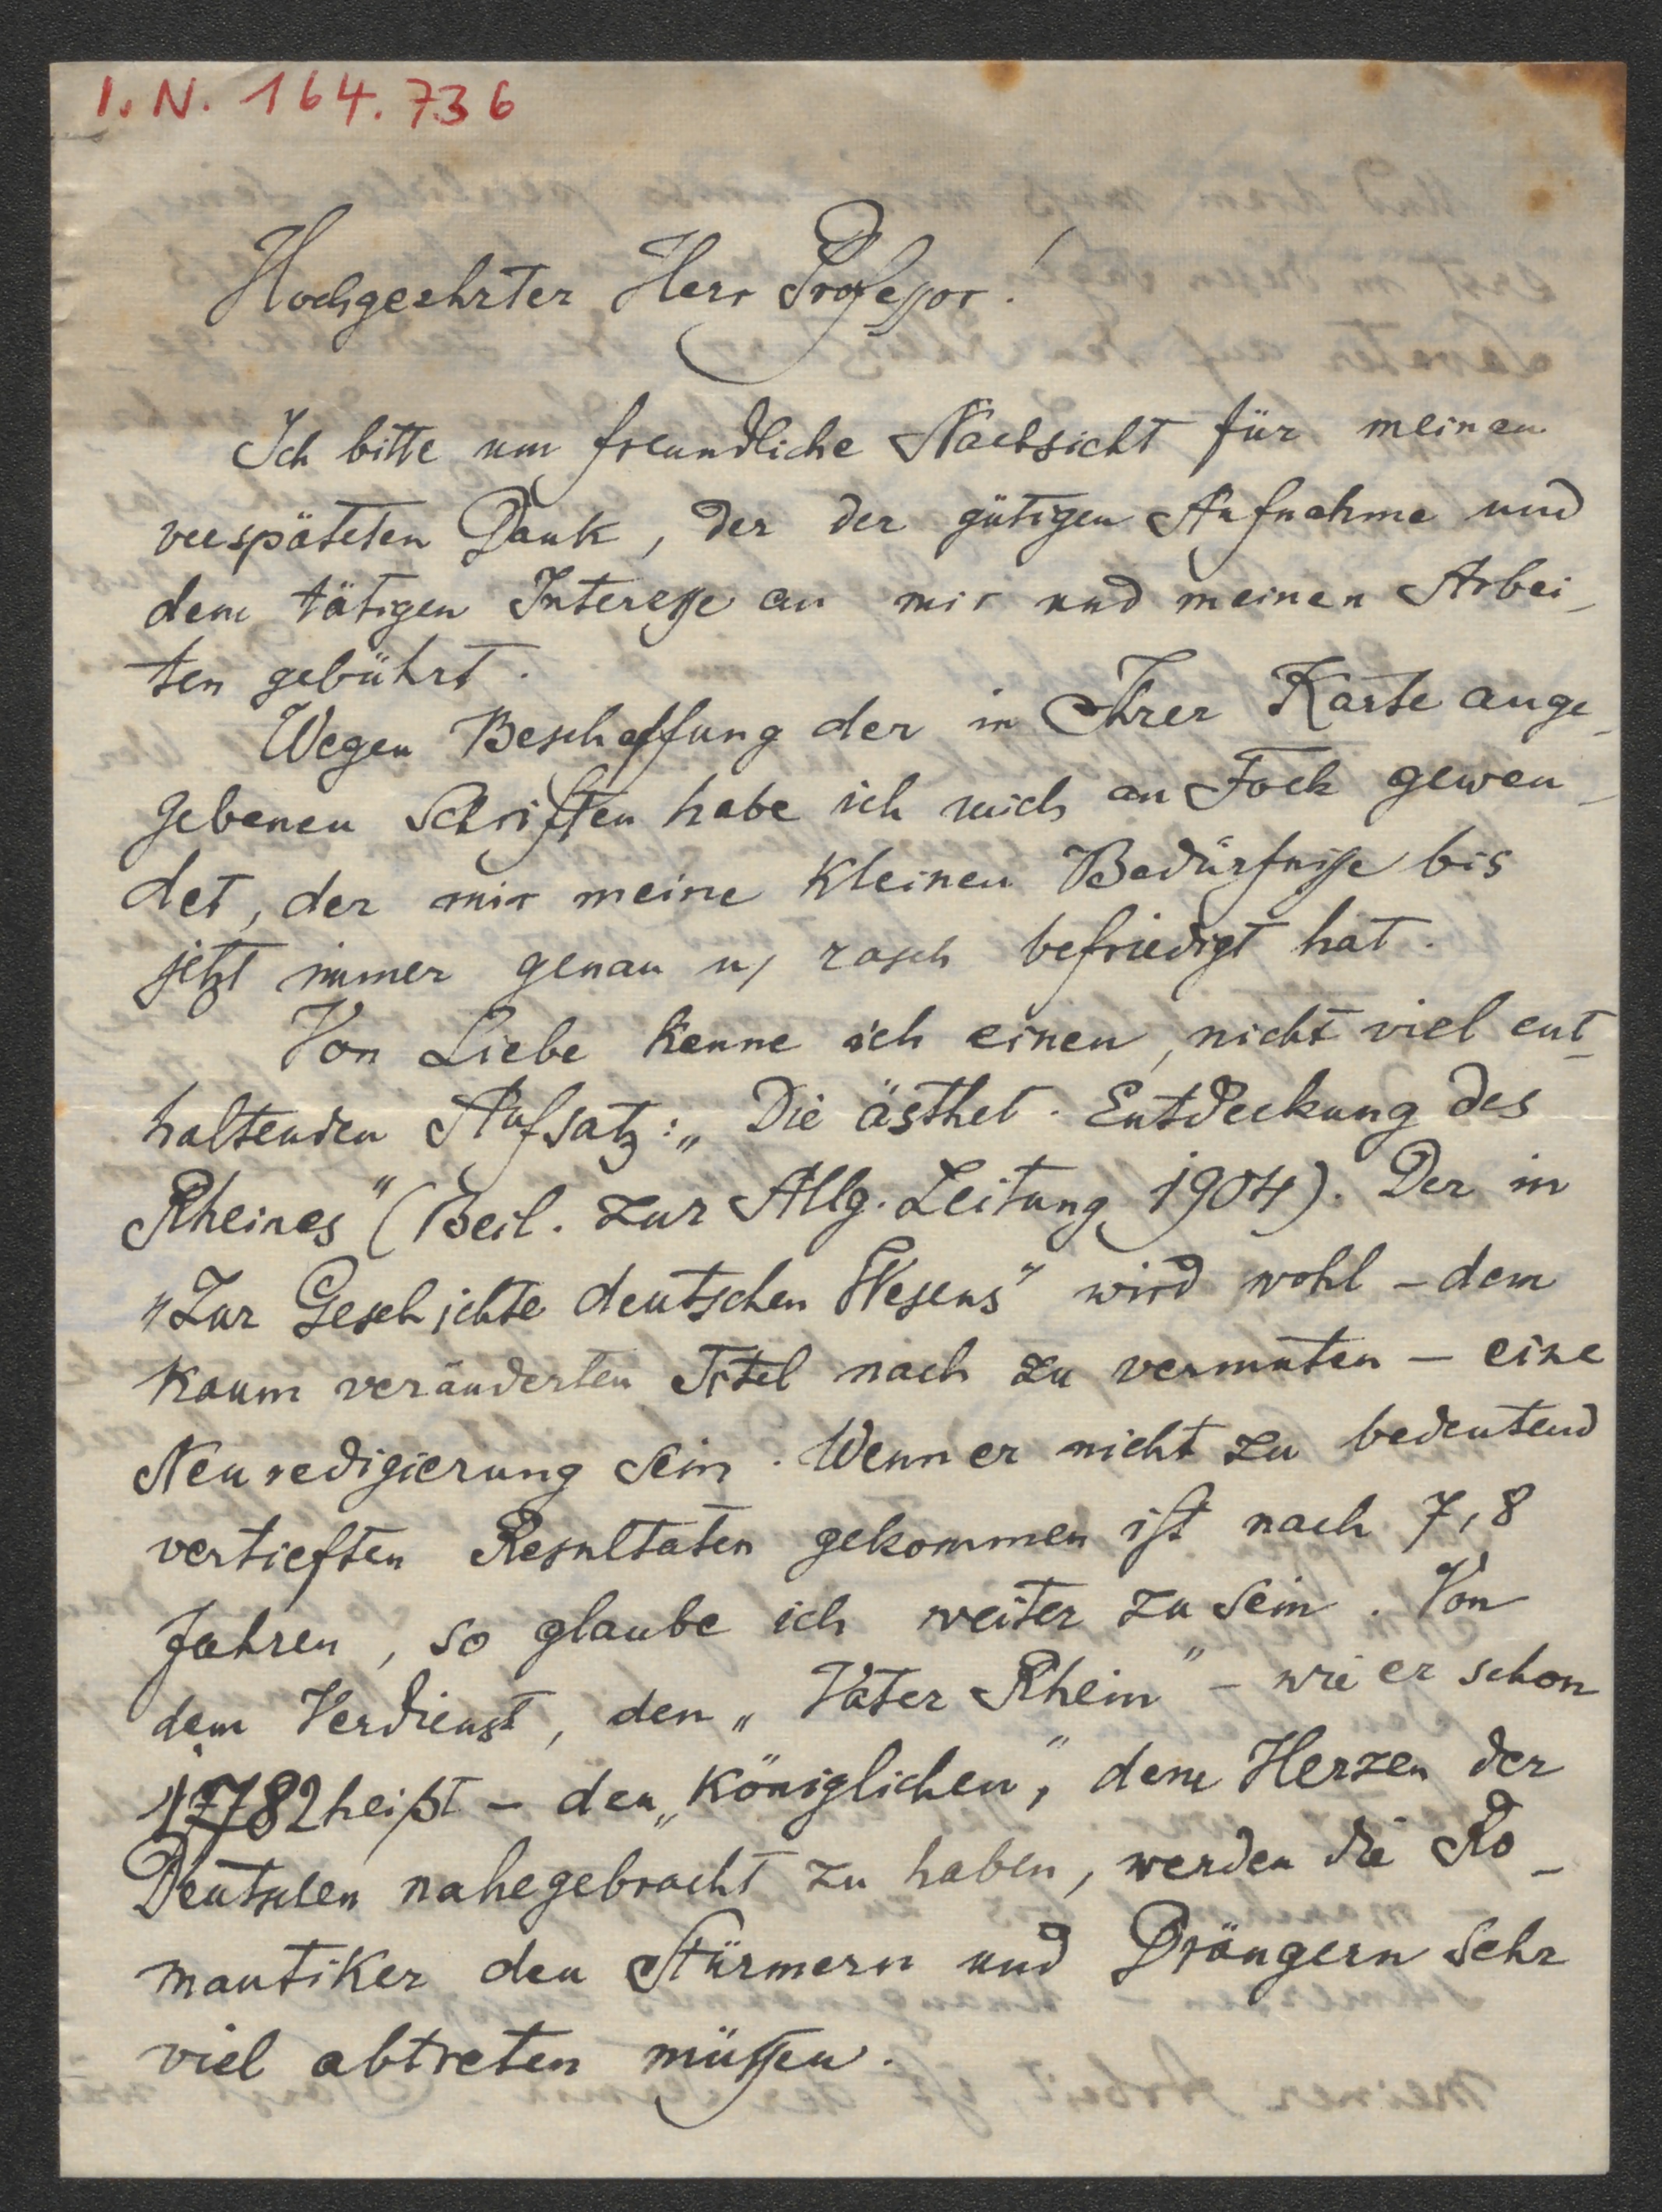 I. N. 164.736
Hochgeehrter Herr Professor!
Ich bitte um freundliche Nachsicht für meinen
verspäteten Dank, der der gütigen Aufnahme und
dem tätigen Interesse an mir und meinen Arbei-
ten gebührt.
Wegen Beschaffung der in Ihrer Karte ange-
gebenen Schriften habe ich mich an Fock gewen-
det, der mir meine kleinen Bedürfnisse bis
jetzt immer genau u, rasch befriedigt hat.
Von Liebe kenne ich einen, nicht viel ent-
haltenden Aufsatz: „Die ästhet. Entdeckung des
Rheines" (Beil. zur Allg. Zeitung 1904). Der in
„Zur Geschichte deutschen Wesens" wird wohl – dem
kaum veränderten Titel nach zu vermuten – eine
Neuredigierung sein. Wenn er nicht zu bedeutend
vertieften Resultaten gekommen ist nach 7, 8
Jahren, so glaube ich weiter zu sein. Von
dem Verdienst, den „Vater Rhein" – wie er schon
1782 heißt – den „königlichen", dem Herzen der
Deutschen nahegebracht zu haben, werden die Ro-
mantiker den Stürmern und Drängern sehr
viel abtreten müssen.